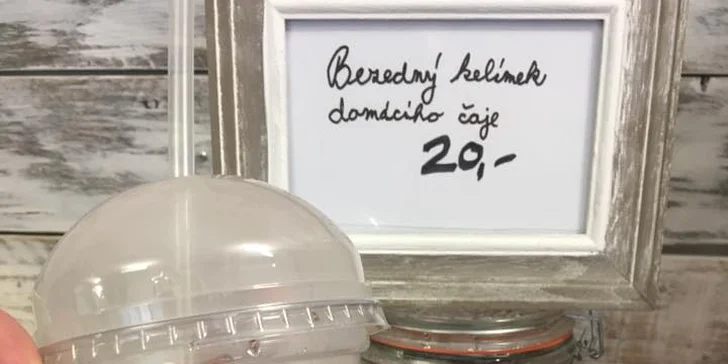 Bezedný kelímek
domácího čaje
20,-